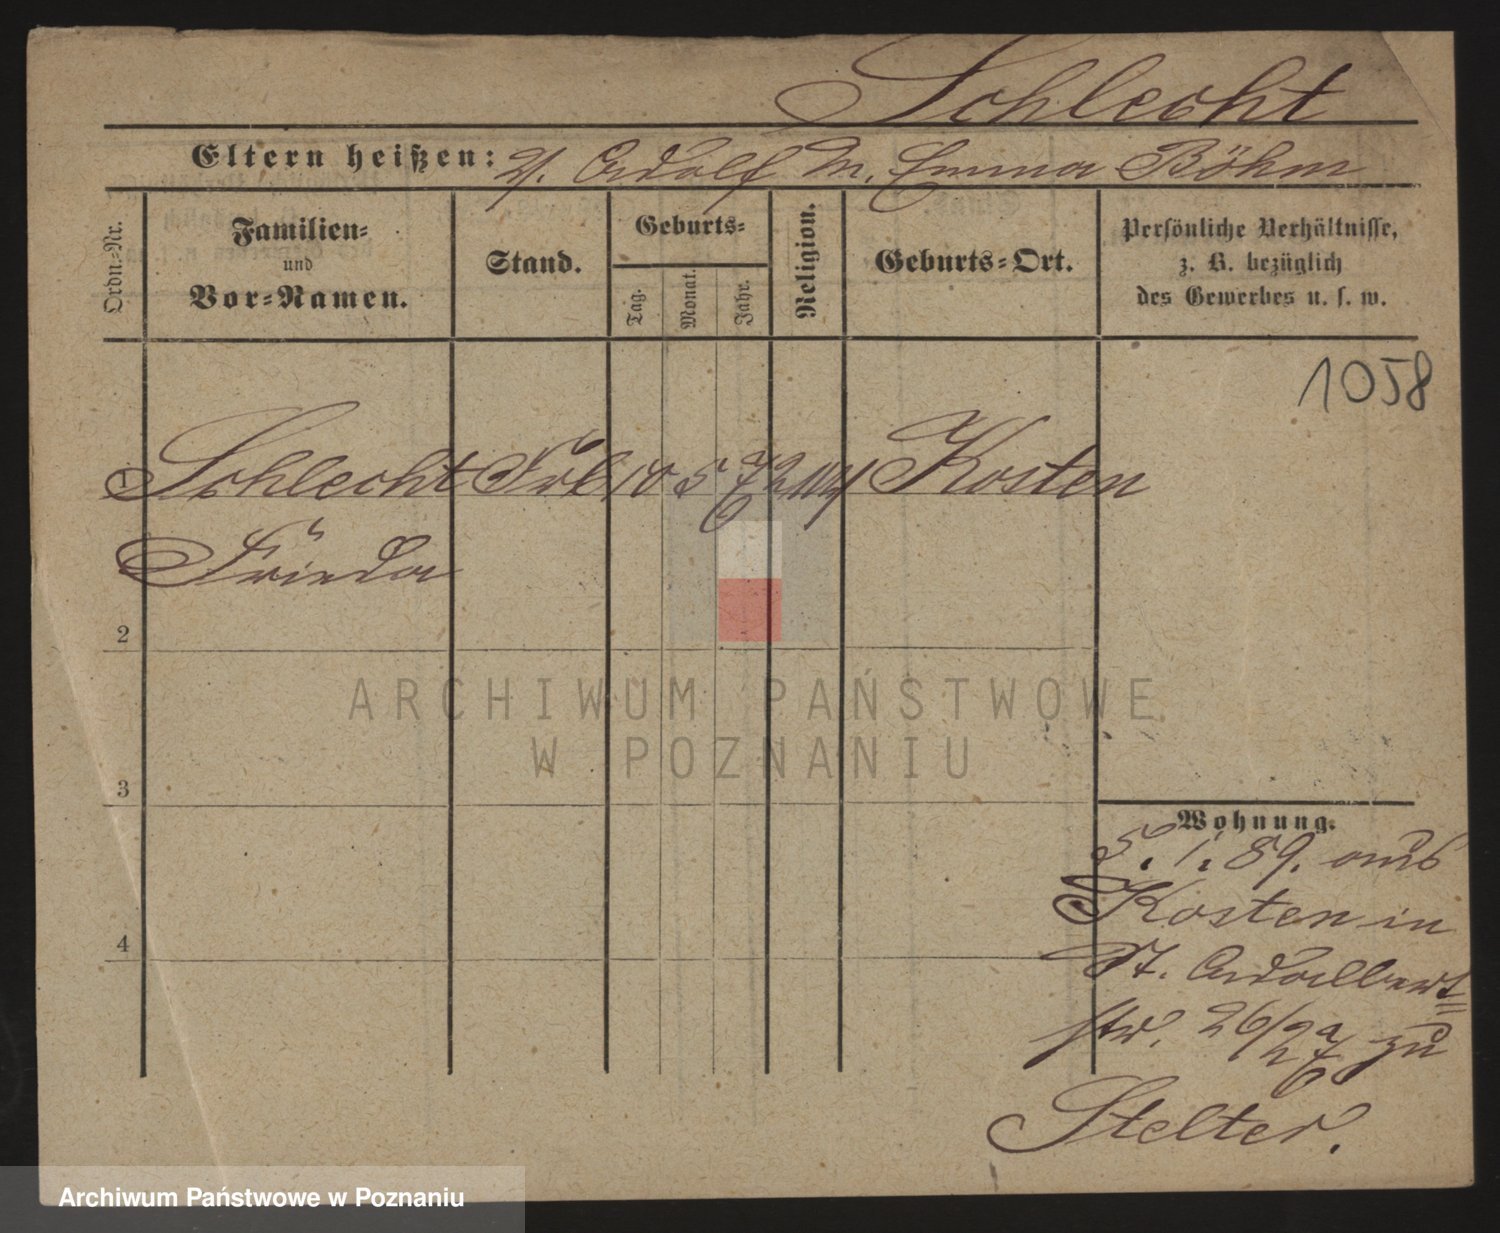 Schlecht
Eltern heißen: V. Adolf M. Emma Böhm
Ordn.-Nr.
Familien-
und
Vor-Namen.
Stand.
Geburts-
Tag.
Monat.
Jahr.
Religion.
Geburts-Ort.
Persönliche Verhältnisse,
z. B. bezüglich
des Gewerbes u. s. w.
1058
1 Schlecht Frl 18 5 72 Kosten
Frieda
2
3
4
Wohnung.
5. 1. 89. aus
Kosten in
St. Adalbert
str. 26/27 zu
Stelter.
ARCHIWUM PAŃSTWOWE
W POZNANIU
Archiwum Państwowe w Poznaniu